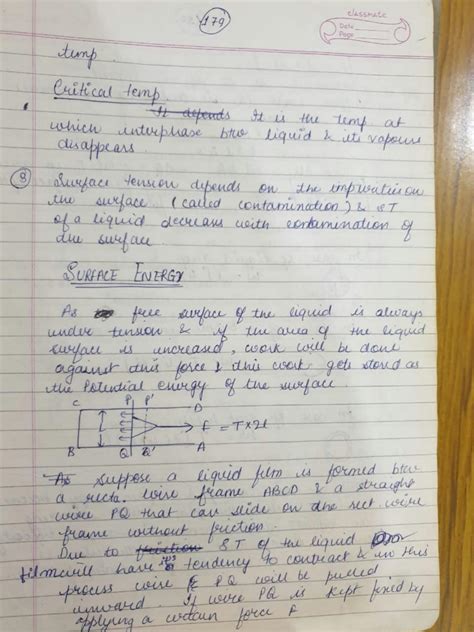 179
classmate
Date
Page
temp
Critical temp
It depends It is the temp at
which interphase btw liquid & its vapours
disappears
9
Surface tension depends on the impurities on
the surface (called contamination) & ST
of a liquid decreases with contamination of
the surface
SURFACE ENERGY
As free surface of the liquid is always
under tension & if the area of the liquid
surface is increased, work will be done
against this force & this work gets stored as
the Potential energy of the surface
C P P' D
F = T×2l
B Q Q' A
As Suppose a liquid film is formed btw
a recta. wire frame ABCD & a straight
wire PQ that can slide on the rect. wire
frame without friction.
Due to friction ST of the liquid
film will have tendency to contract & in this
process wire PQ will be pulled
inward. If wire PQ is kept fixed by
applying a certain force F